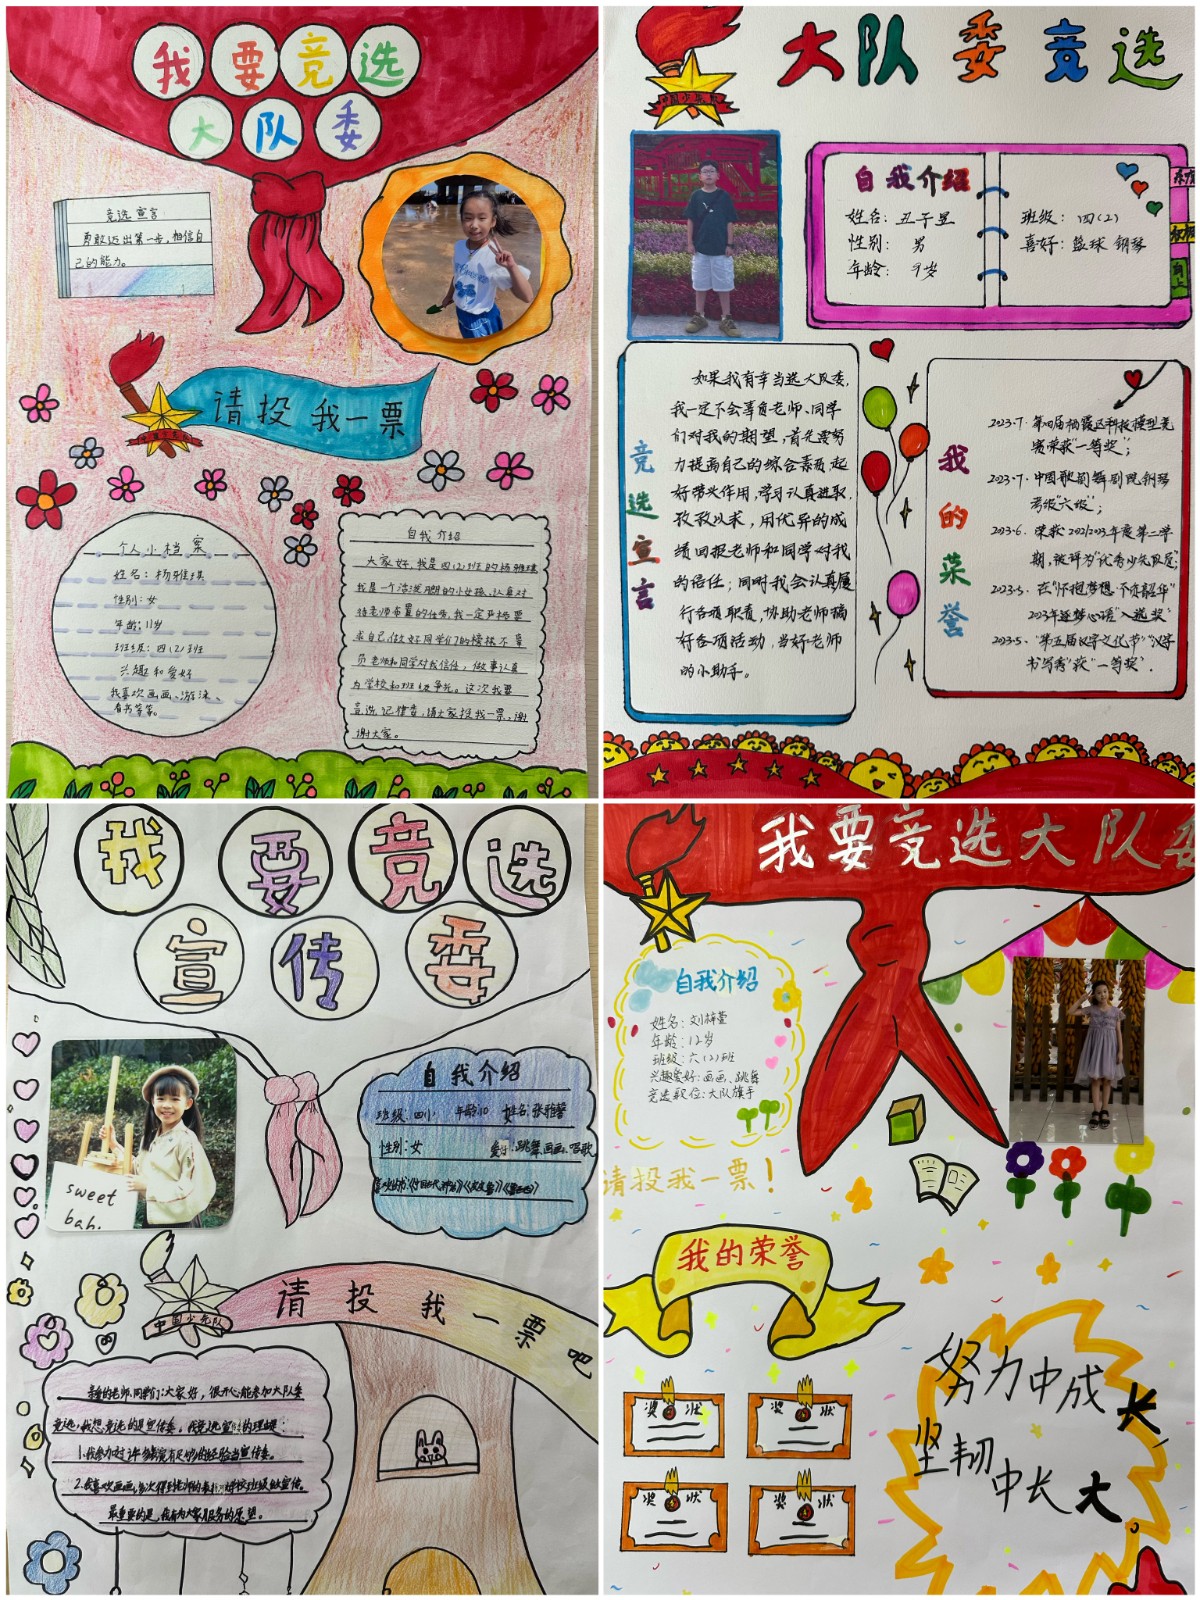 我要竞选
大队委
竞选宣言
勇敢迈出第一步,相信自
己的能力。
请投我一票
个人小档案
姓名:杨雅琪
性别:女
年龄:11岁
班级:四(2)班
兴趣和爱好
我喜欢画画、游泳、
看书等等。
自我介绍
大家好,我是四(2)班的杨雅琪
我是一个活泼开朗的小女孩、认真对
待老师布置的任务,我一定严格要
求自己做好同学们的榜样不辜
负老师和同学对我信任,做事认真
为学校和班级争光。这次我要
竞选纪律委,请大家投我一票、谢
谢大家。
大队委竞选
自我介绍
姓名:丑予昱
性别:男
年龄:9岁
班级:四(2)
喜好:篮球 钢琴
竞选宣言
如果我有幸当选大队委,
我一定不会辜负老师、同学
们对我的期望,首先要努
力提高自己的综合素质起
好带头作用,学习认真进取,
孜孜以求,用优异的成
绩回报老师和同学对我
的信任;同时我会认真履
行各项职责,协助老师搞
好各项活动,当好老师
的小助手。
我的荣誉
2023.7.第四届栖霞区科技模型竞
赛荣获“一等奖”;
2023.7.中国歌剧舞剧院钢琴
考级“六级”;
2023.6.荣获2022/2023年度第二学
期,被评为“优秀少先队员”;
2023.5.在“怀揣梦想·不负韶华”
2023年逐梦心语“入选奖”
2023.5.“第五届汉字文化节”“汉字
书写秀”获“一等奖”.
我要竞选
宣传委
sweet
bah.
自我介绍
班级:四(1) 年龄:10 姓名:张雅馨
性别:女 爱好:跳舞、画画、唱歌
中国少先队
请投我一票吧
亲爱的老师、同学们:大家好,很开心能参加大队委
竞选,我想竞选的是宣传委,我竞选宣传的理由是:
最重要的是,我有为大家服务的愿望。
我要竞选大队委
自我介绍
姓名:刘梓萱
年龄:12岁
班级:六(2)班
兴趣爱好:画画、跳舞
竞选职位:大队旗手
请投我一票!
我的荣誉
奖状
奖状
奖状
奖状
努力中成长
坚韧中长大